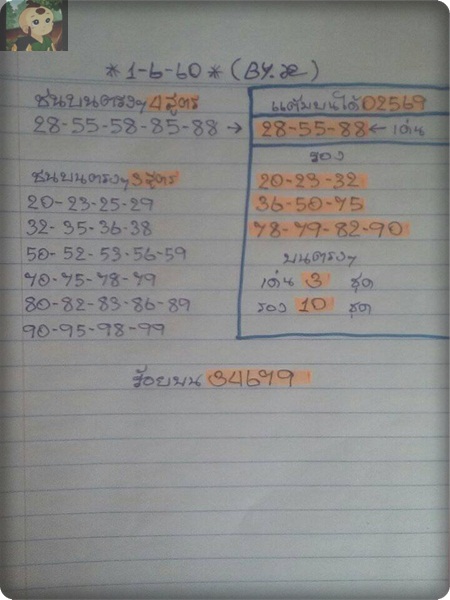 *1-6-60* (BY.
ชนบนตรงๆ 4 สูตร
28-55-58-85-88 →
ชนบนตรงๆ 3 สูตร
20-23-25-29
32-35-36-38
50-52-53-56-59
70-75-78-79
80-82-83-86-89
90-95-98-99
แต้มบนได้ 02569
28-55-88 ← เด่น
รอง
20-23-32
36-50-75
78-79-82-90
บนตรงๆ
เด่น 3 ชุด
รอง 10 ชุด
ร้อยบน 34679